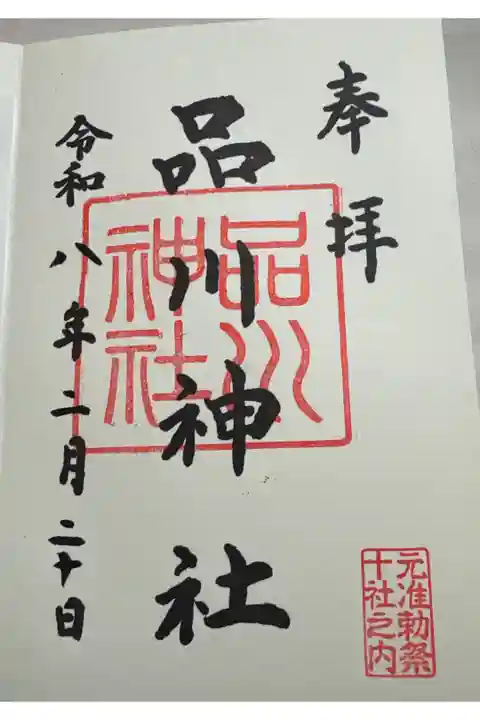 奉拝
品川神社
品川
神社
令和八年二月二十日
元准勅祭
十社之内